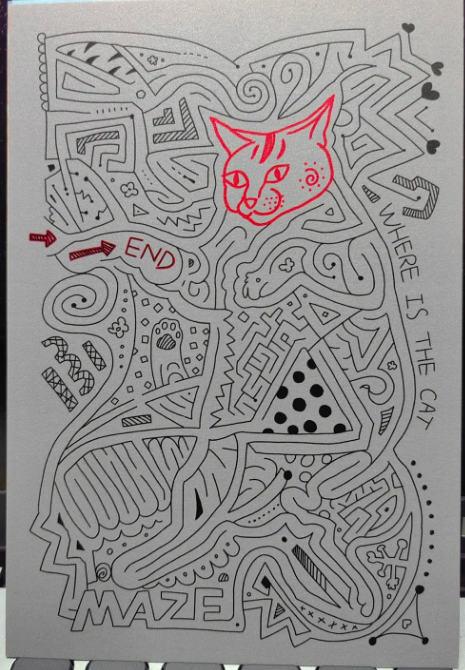 END
WHERE IS THE CAT
MAZE